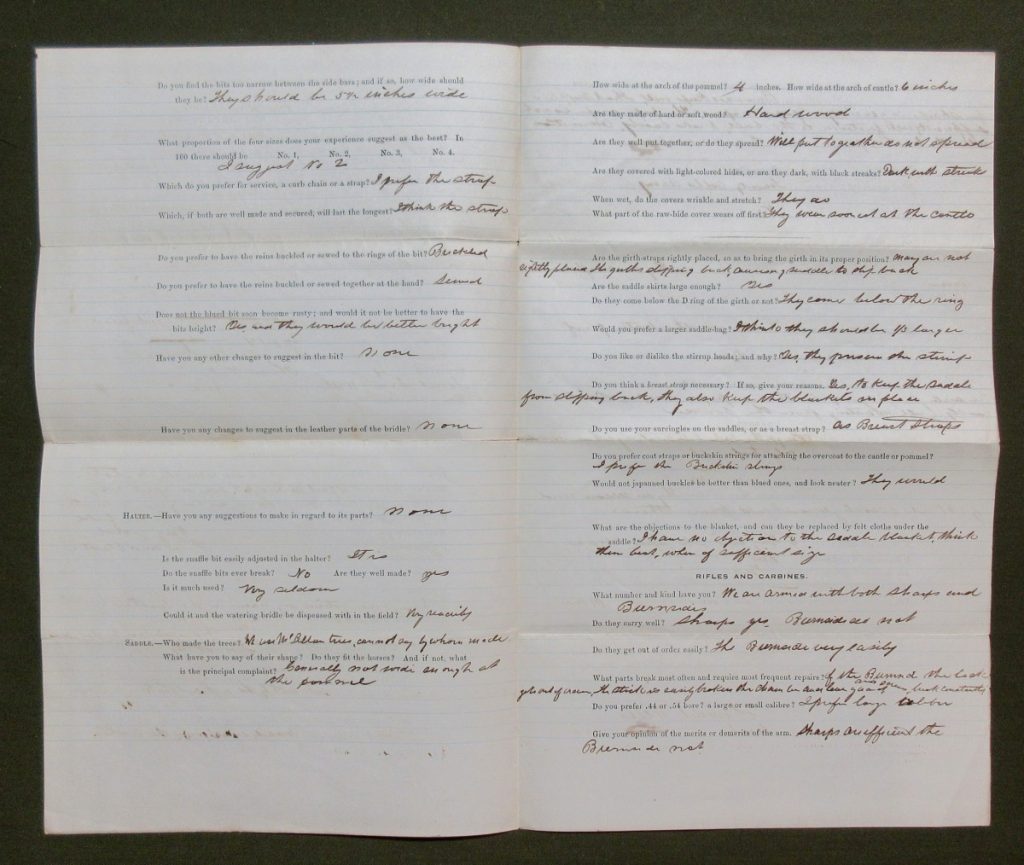 Do you find the bits too narrow between the side bars; and if so, how wide should
they be? They should be 5½ inches wide
What proportion of the four sizes does your experience suggest as the best? In
100 there should be No. 1, No. 2, No. 3, No. 4.
I suggest No 2
Which do you prefer for service, a curb chain or a strap? I prefer the strap
Which, if both are well made and secured, will last the longest? I think the strap
Do you prefer to have the reins buckled or sewed to the rings of the bit? Buckled
Do you prefer to have the reins buckled or sewed together at the hand? Sewed
Does not the blued bit soon become rusty; and would it not be better to have the
bits bright? Yes and they would be better bright
Have you any other changes to suggest in the bit? None
Have you any changes to suggest in the leather parts of the bridle? None
HALTER.—Have you any suggestions to make in regard to its parts? None
Is the snaffle bit easily adjusted in the halter? It is
Do the snaffle bits ever break? No Are they well made? yes
Is it much used? Very seldom
Could it and the watering bridle be dispensed with in the field? Very readily
SADDLE.—Who made the trees? We use McClellan trees, cannot say by whom made
What have you to say of their shape? Do they fit the horses? And if not, what
is the principal complaint? Generally not wide enough at
the pommel
How wide at the arch of the pommel? 4 inches. How wide at the arch of cantle? 6 inches
Are they made of hard or soft wood? Hard wood
Are they well put together, or do they spread? Well put together do not spread
Are they covered with light-colored hides, or are they dark, with black streaks? Dark with streaks
When wet, do the covers wrinkle and stretch? They do
What part of the raw-hide cover wears off first? They wear soonest at the cantle
Are the girth-straps rightly placed, so as to bring the girth in its proper position? many are not
rightly placed the girths slipping back, causing saddle to slip back
Are the saddle skirts large enough? Yes
Do they come below the D ring of the girth or not? They come below the ring
Would you prefer a larger saddle-bag? I think they should be ⅓ larger
Do you like or dislike the stirrup hoods; and why? Yes, they preserve the stirrup
Do you think a breast strap necessary? If so, give your reasons. Yes, to keep the saddle
from slipping back, they also keep the blankets in place
Do you use your surcingles on the saddles, or as a breast strap? as Breast straps
Do you prefer coat straps or buckskin strings for attaching the overcoat to the cantle or pommel?
I prefer the Buckskin strings
Would not japanned buckles be better than blued ones, and look neater? They would
What are the objections to the blanket, and can they be replaced by felt cloths under the
saddle? I have no objection to the saddle blanket, think
them best, when of sufficient size
RIFLES AND CARBINES.
What number and kind have you? We are armed with both Sharps and
Burnsides
Do they carry well? Sharps yes, Burnsides not
Do they get out of order easily? The Burnside very easily
What parts break most often and require most frequent repairs? Of the Burnside the lock
gets out of order, the stock is easily broken the
Do you prefer .44 or .54 bore? a large or small calibre? I prefer large calibre
Give your opinion of the merits or demerits of the arm. Sharps are efficient the
Burnside not